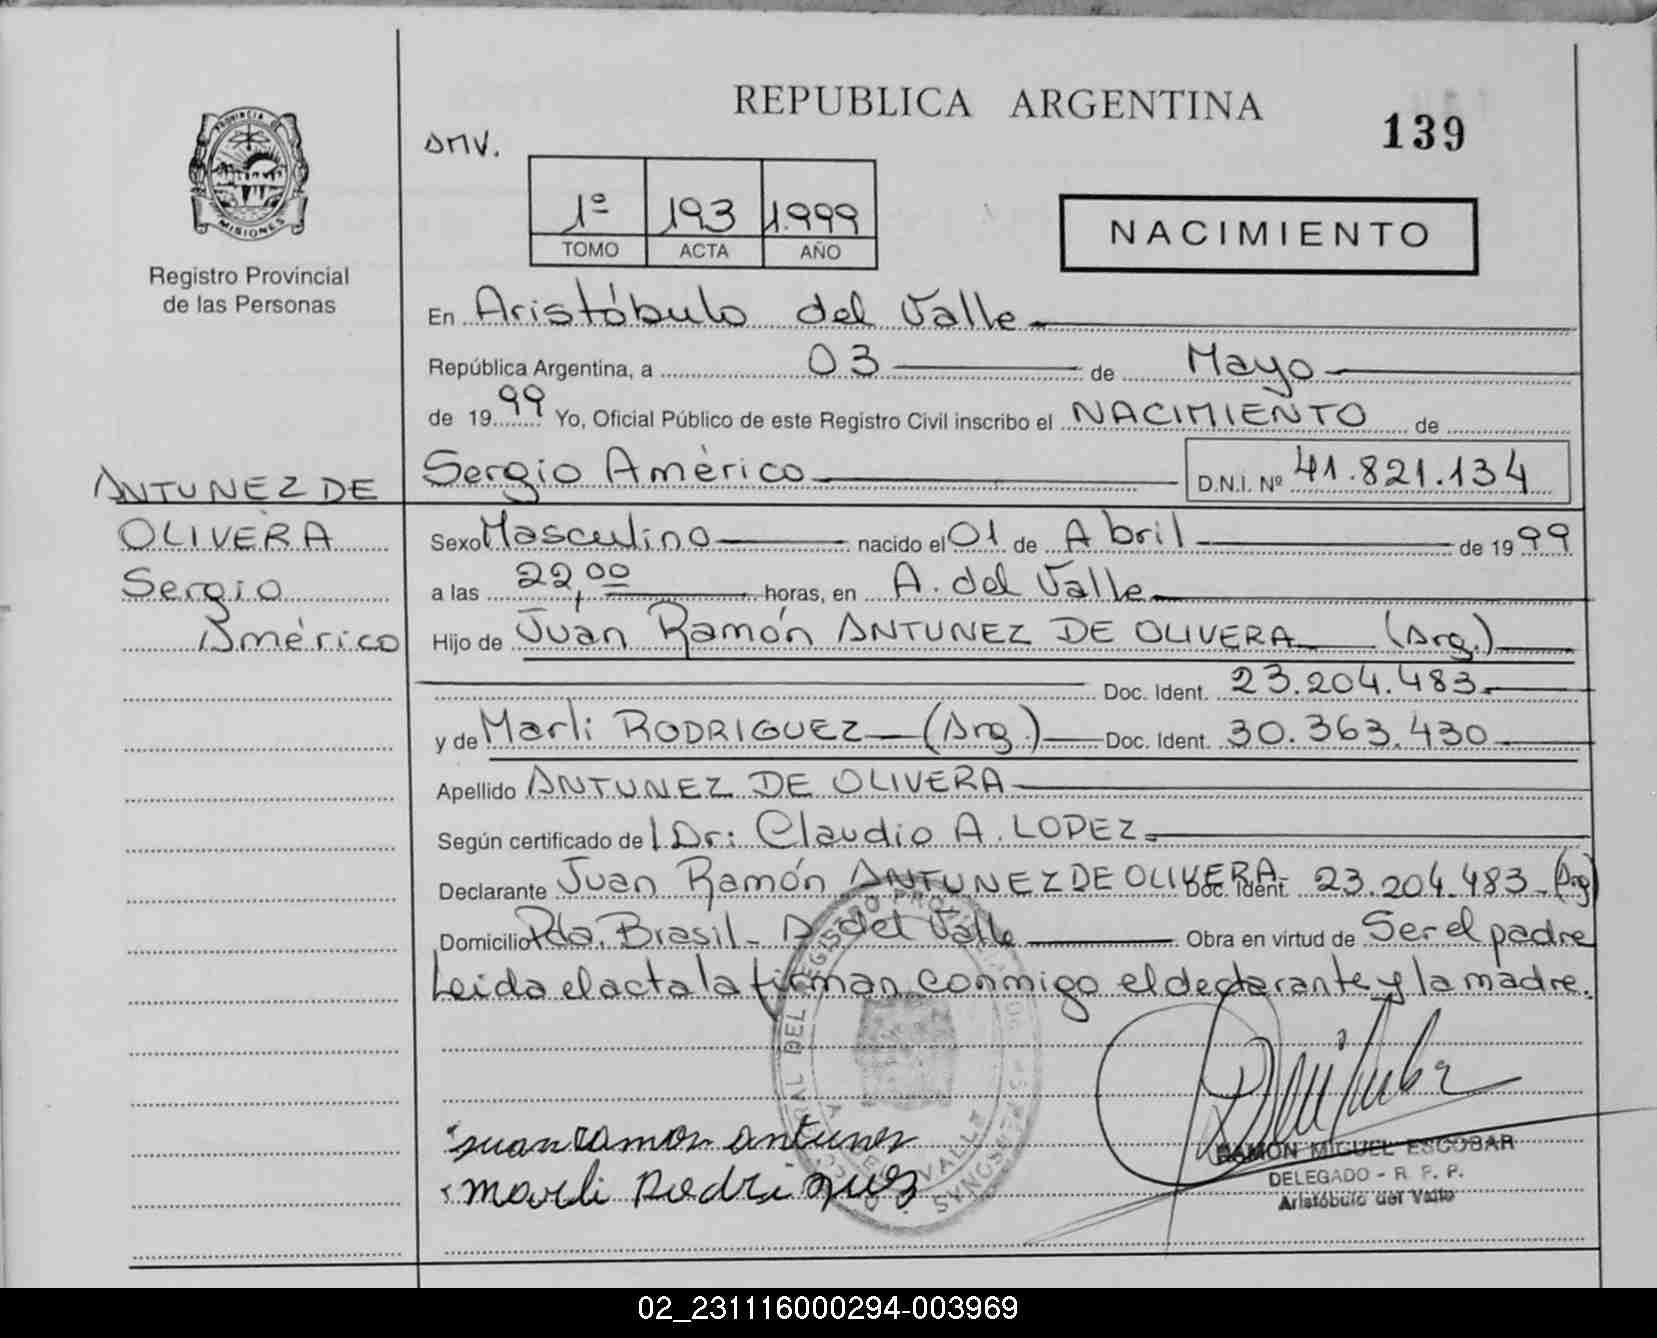 REPUBLICA ARGENTINA
139
PROVINCIA DE
MISIONES
Registro Provincial
de las Personas
AMV.
1º 193 1.999
TOMO ACTA AÑO
NACIMIENTO
En Aristóbulo del Valle
República Argentina, a 03 de Mayo
de 1999 Yo, Oficial Público de este Registro Civil inscribo el NACIMIENTO de
Sergio Américo D.N.I. Nº 41.821.134
ANTUNEZ DE
OLIVERA
Sergio
Américo
Sexo Masculino nacido el 01 de Abril de 1999
a las 22,00 horas, en A. del Valle
Hijo de Juan Ramón ANTUNEZ DE OLIVERA (Arg.)
Doc. Ident. 23.204.483.
y de Marli RODRIGUEZ (Arg.) Doc. Ident. 30.363.430
Apellido ANTUNEZ DE OLIVERA
Según certificado de l Dr: Claudio A. LOPEZ
Declarante Juan Ramón ANTUNEZ DE OLIVERA Doc. Ident. 23.204.483 (Arg)
Domicilio Pdo. Brasil - A del Valle Obra en virtud de Ser el padre
Leida el acta la firman conmigo el declarante y la madre.
juan ramon antunez
marli Rodriguez
RAMON MIGUEL ESCOBAR
DELEGADO - R. P. P.
Aristóbulo del Valle
02_231116000294-003969